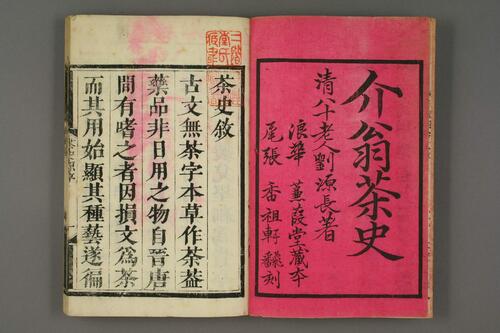 介翁茶史
清八十老人劉源長著
浪華 蒹葭堂藏本
尾張 香祖軒翻刻
茶史敘
古文無茶字本草作荼蓋
藥品非日用之物自晉唐
間有嗜之者因損文爲茶
而其用始顯其種藝遂徧